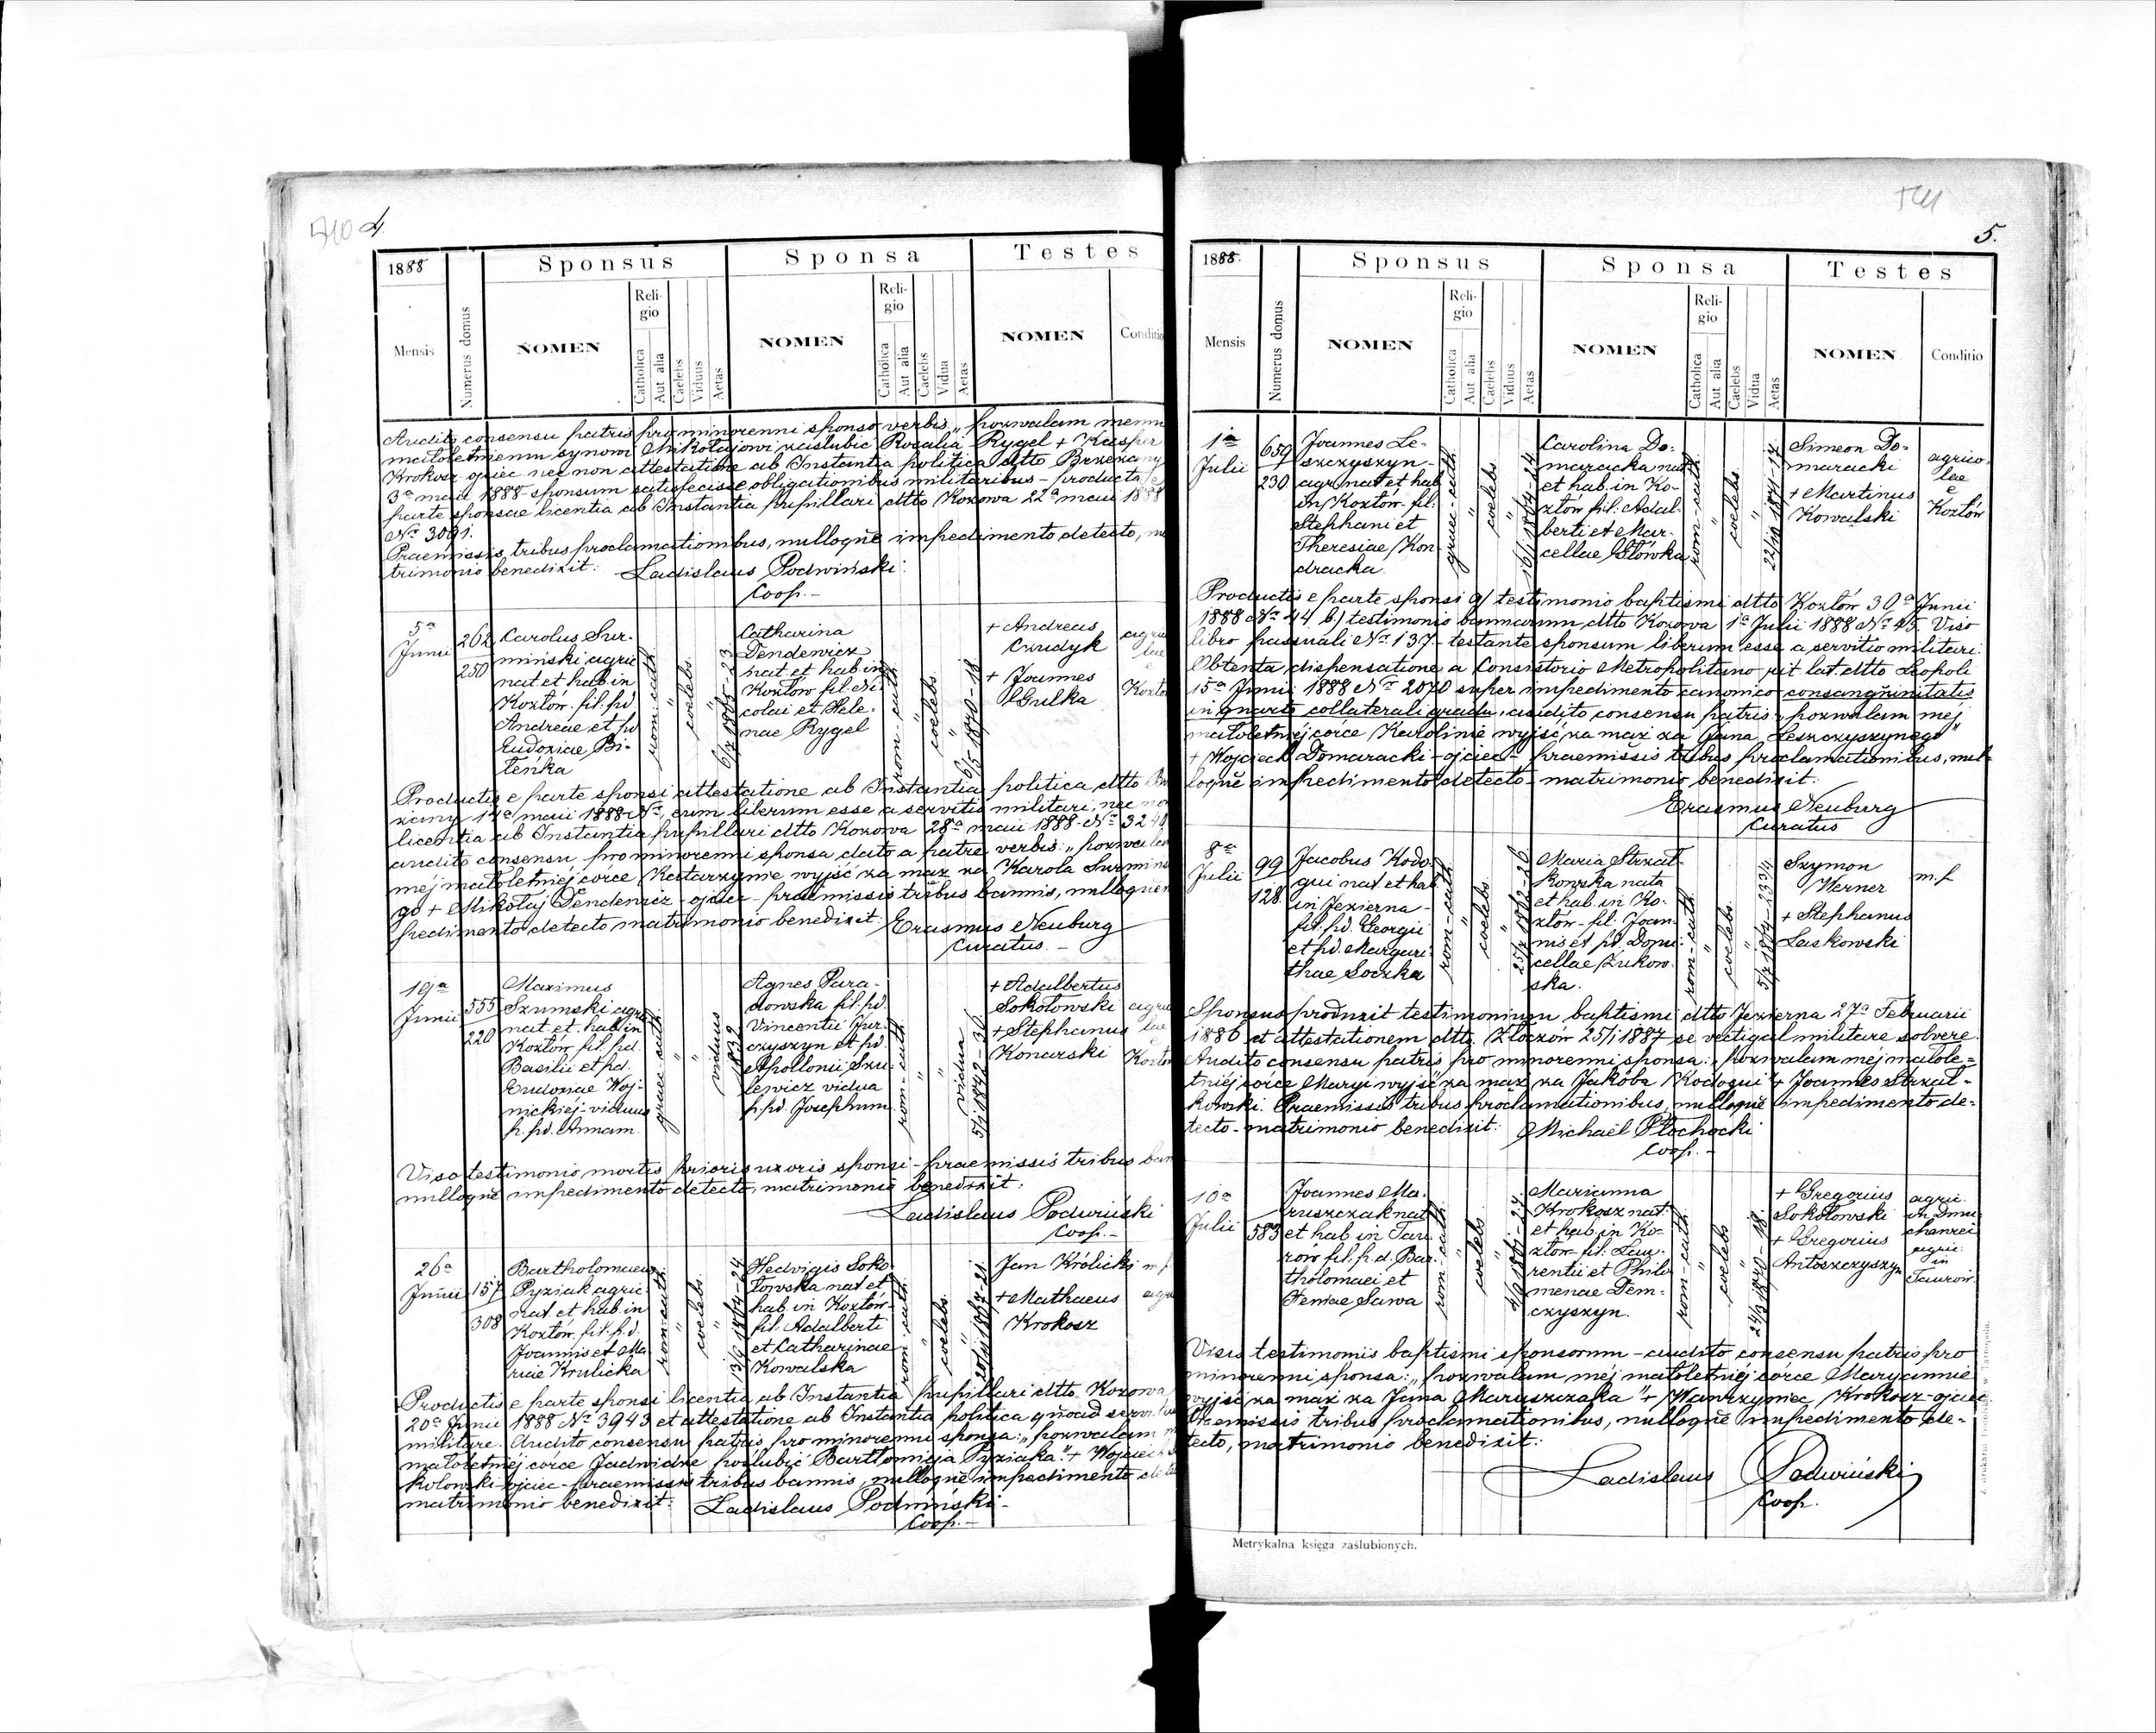 510 4.
1888 Sponsus Sponsa Testes
Mensis
Numerus domus
NOMEN
Religio
Catholica
Aut alia
Caelebs
Viduus
Aetas
NOMEN
Religio
Catholica
Aut alia
Caelebs
Vidua
Aetas
NOMEN
Conditio
Audito consensu patris pro minorenni sponso verbis „pozwalam memu
małoletniemu synowi Mikołajowi zaślubić Rozalię Rygel + Kasper
Krokosz ojciec nec non attestatione ab Instantia politica dtto Brzeżany
3a maii 1888 sponsum satisfecisse obligationibus militaribus - producta e
parte sponsae licentia ab Instantia pupillari dtto Kozowa 22a maii 1888
No 3091.
Praemissis tribus proclamationibus, nulloque impedimento detecto,
trimonio benedixit: Ladislaus Podwiński
Coop. -
5a
Junii
262
250
Carolus Sur-
miński agric
nat et hab in
Kozłów fil. pd
Andreae et pd
Eudoxiae Bi-
leńka
rom-cath.
"
coelebs
"
6/7 1865-23
Catharina
Dendewicz
nat et hab in
Kozłów fil. Ni-
colai et Hele-
nae Rygel
rom-cath.
"
coelebs
"
6/5 1870-18
+ Andreas
Czudyk
+ Joannes
Gulka
agrico
lae
e
Kozłów
Productis e parte sponsi attestatione ab Instantia politica dtto
żany 14a maii 1888 No, eum liberum esse a servitio militari, nec non
licentia ab Instantia pupillari dtto Kozowa 28a maii 1888 No 3240
audito consensu pro minorenni sponsa dato a patre verbis: „pozwalam
méj małoletniéj córce Katarzynie wyjść za mąż za Karola Surmińs
go + Mikołaj Dendewicz - ojciec - praemissis tribus bannis, nulloque im
pedimento detecto matrimonio benedixit: Erasmus Neuburg
Curatus. -
19a
Junii
555
220
Maximus
Szumski agric
nat et hab in
Kozłów fil. pd.
Basilii et pd.
Eudoxiae Woj-
nickiéj - viduus
p. pd. Annam
graec-cath.
"
"
viduus
1832
Agnes Para-
dowska fil. pd.
Vincentii Jur-
czyszyn et pd.
Apollonii Szu-
lewicz vidua
p. pd. Josephum
rom-cath.
"
"
vidua
5/1 1842-36
+ Adalbertus
Sokołowski
+ Stephanus
Konarski
agrico
lae
e
Kozłów
Viso testimonio mortis prioris uxoris sponsi - praemissis tribus ban
nulloque impedimento detecto, matrimonio benedixit:
Ladislaus Podwiński
Coop. -
26a
Junii
157
308
Bartholomaeus
Pyziak agric
nat et hab in
Kozłów fil. p.d.
Joannis et Ma
riae Krulicka
rom-cath.
"
coelebs
"
13/9 1864-24
Hedvigis Soko-
łowska nat et
hab in Kozłów
fil. Adalberti
et Catharinae
Kowalska
rom-cath.
"
coelebs
"
20/1 1867-21
Jan Królicki
+ Mathaeus
Krokosz
m.f
agric
Productis e parte sponsi licentia ab Instantia pupillari dtto Kozowa
20a Junii 1888 No 3943 et attestatione ab Instantia politica quoad servitium
militare. Audito consensu patris pro minorenni sponsa: „pozwalam m
małoletniéj córce Jadwidze poślubić Bartłomieja Pyziaka" + Wojciech So
kołowski - ojciec - praemissis tribus bannis, nulloque impedimento dete
matrimonio benedixit: Ladislaus Podwiński -
Coop. -
5.
1888. Sponsus Sponsa Testes
Mensis
Numerus domus
NOMEN
Religio
Catholica
Aut alia
Caelebs
Viduus
Aetas
NOMEN
Religio
Catholica
Aut alia
Caelebs
Vidua
Aetas
NOMEN
Conditio
1a
Julii
659
230
Joannes Le-
szczyszyn -
agr. nat et hab
in Kozłów fil:
Stephani et
Theresiae Kon-
dracka
graec-cath
"
coelebs
"
16/1 1864-24
Carolina Do-
maracka nat
et hab. in Ko-
złów fil: Adal-
berti et Mar-
cellae Słówka
rom-cath
"
coelebs
"
22/10 1871-17
Simeon Do-
maracki
+ Martinus
Kowalski
agrico
lae
e
Kozłów
Productis e parte sponsi a/ testimonio baptismi dtto Kozłów 30a Junii
1888 No 44 b/ testimonio bannorum dtto Kozowa 1a Julii 1888 No 45. Viso
libro passuali No 137 - testante sponsum liberum esse a servitio militari.
Obtenta dispensatione a Consistorio Metropolitano rit lat. dtto Leopoli
15a Junii 1888 No 2070 super impedimento canonico consanguinitatis
in quarto collaterali gradu, audito consensu patris „pozwalam méj
małoletniéj córce Karolinie wyjść za mąż za Jana Leszczyszynego"
+ Wojciech Domaracki - ojciec - praemissis tribus proclamationibus, nul-
loque impedimento detecto - matrimonio benedixit:
Erasmus Neuburg
Curatus
8a
Julii
99
128
Jacobus Kodo-
gui nat et hab
in Jezierna -
fil. pd. Georgii
et pd. Margari-
thae Soczka
rom-cath.
"
coelebs
"
25/7 1862-26
Maria Strzał-
kowska nata
et hab. in Ko-
złów - fil. Joan-
nis et pd. Domi-
cellae Żukow-
ska.
rom-cath.
"
coelebs
"
Szymon
Werner
+ Stephanus
Laskowski
m.f
Sponsus produxit testimonium baptismi dtto Jezierna 27a Februarii
1886 et attestationem dtto. Złoczów 25/1 1887 se vectigal militare solvere.
Audito consensu patris pro minorenni sponsa: „pozwalam méj małole=
tniéj córce Maryi wyjść za mąż za Jakóba Kodogui" + Joannes Strzał-
kowski. Praemissis tribus proclamationibus, nulloque impedimento de=
tecto - matrimonio benedixit: Michaël Płochocki
Coop. -
10a
Julii
583
Joannes Ma-
ruszczak nat
et hab in Tau-
rów fil. p.d. Bar-
tholomaei et
Teniae Sawa
rom-cath.
"
coelebs
"
Marianna
Krokosz nat:
et hab in Ko-
złów - fil. Lau-
rentii et Philo-
menae Dem-
czyszyn.
rom-cath.
"
coelebs
"
24/3 1870-18.
+ Gregorius
Sokołowski
+ Gregorius
Antoszczyszyn
agric.
in Dmu
chawiec
agric:
in
Taurów.
Visis testimoniis baptismi sponsorum - audito consensu patris pro
minorenni sponsa: „pozwalam méj małoletniéj córce Maryannie
wyjść za mąż za Jana Maruszczaka" + Wawrzyniec Krokosz - ojciec
Praemissis tribus proclamationibus, nulloque impedimento de-
tecto, matrimonio benedixit:
Ladislaus Podwiński
Coop.
Metrykalna księga zaślubionych.